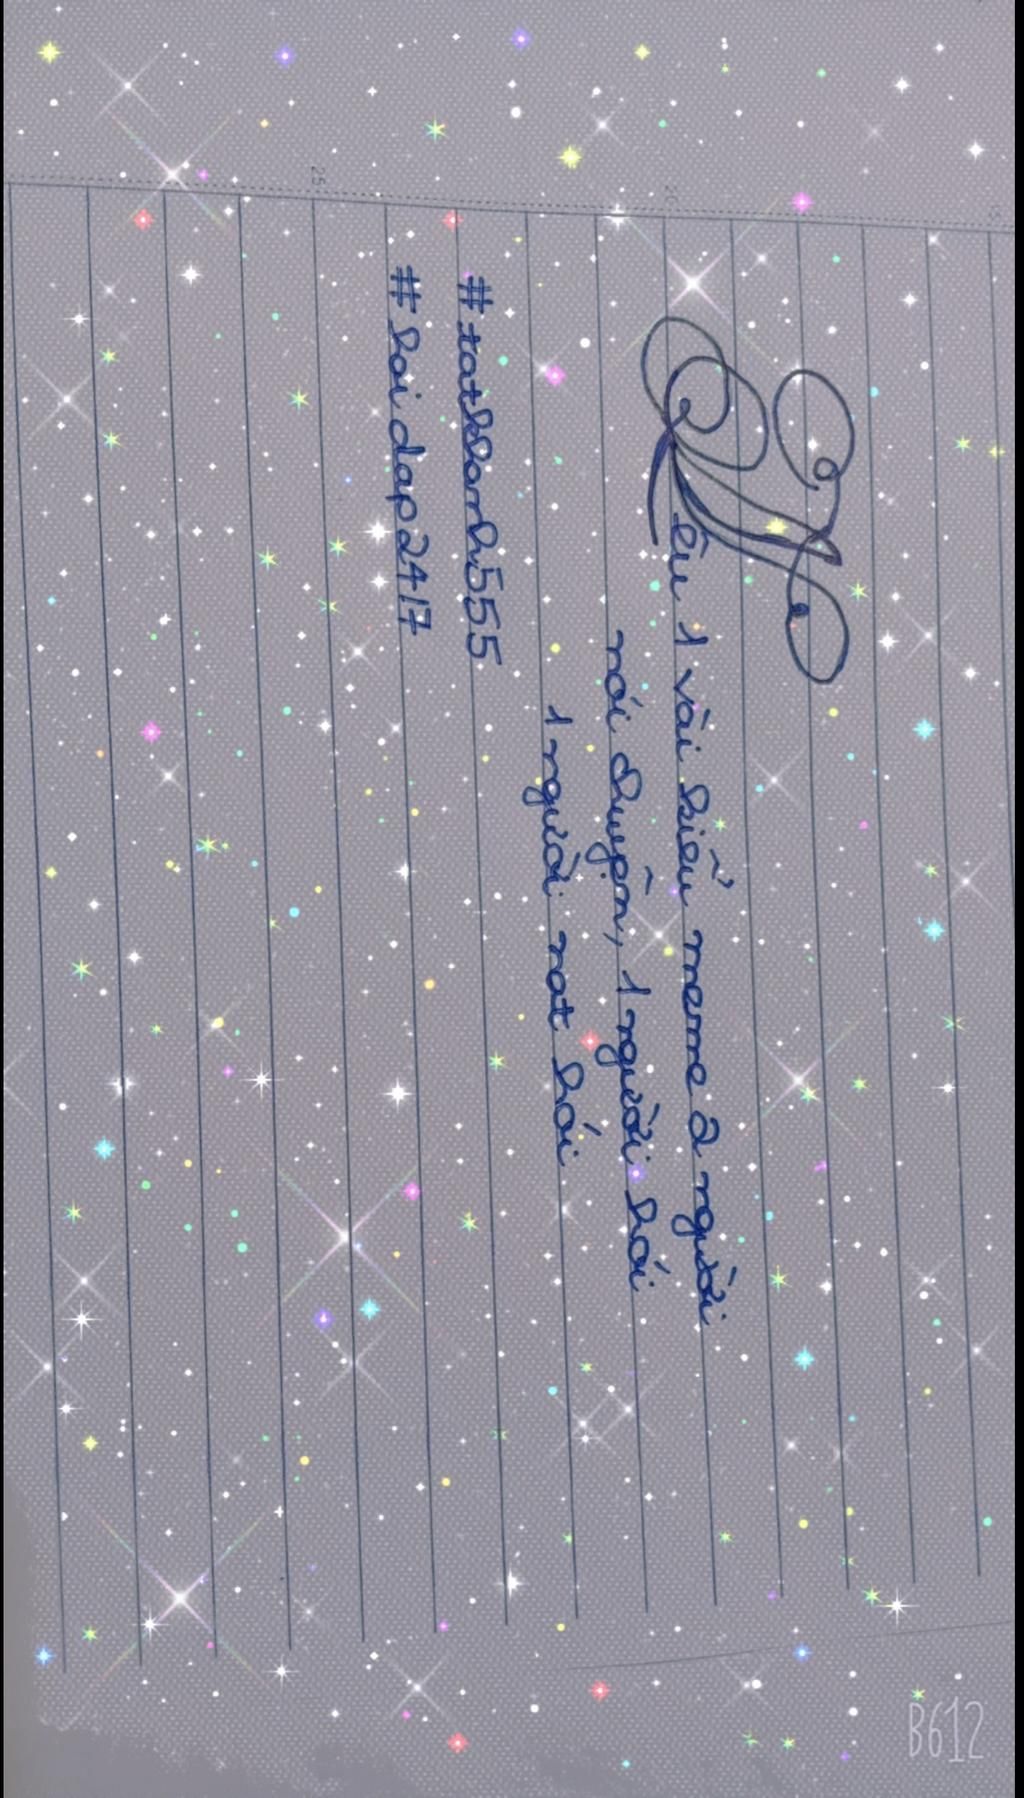 Nêu 1 vài kiểu meme 2 người
nói chuyện, 1 người hói
1 người not hói
#tatkhanh555
#hoidap247
25
20
B612